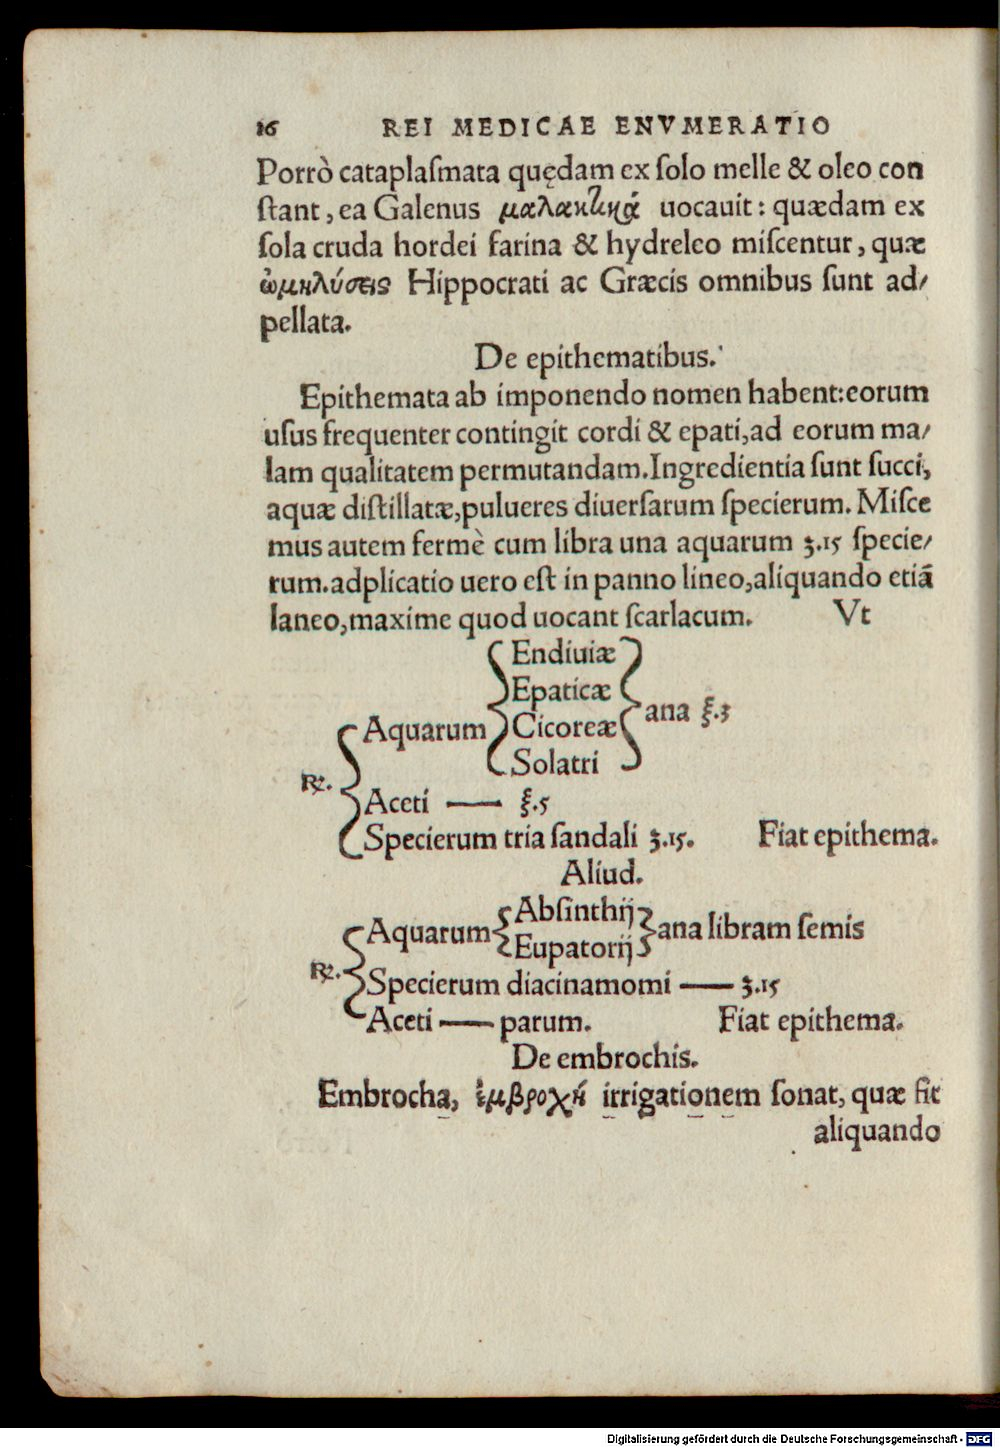 16 REI MEDICAE ENVMERATIO
Porrò cataplaſmata quędam ex ſolo melle & oleo con
ſtant, ea Galenus μαλακτικά uocauit: quædam ex
ſola cruda hordei farina & hydreleo miſcentur, quæ
ὠμηλύσεις Hippocrati ac Græcis omnibus ſunt ad/
pellata.
De epithematibus.
Epithemata ab imponendo nomen habent:eorum
uſus frequenter contingit cordi & epati,ad eorum ma/
lam qualitatem permutandam.Ingredientia ſunt ſucci,
aquæ diſtillatæ,pulueres diuerſarum ſpecierum. Miſce
mus autem fermè cum libra una aquarum ʒ.15 ſpecie/
rum.adplicatio uero eſt in panno lineo,aliquando etiã
laneo,maxime quod uocant ſcarlacum. Vt
Endiuiæ
Epaticæ
Aquarum Cicoreæ ana ℥.3
Solatri
℞.
Aceti — ℥.5
Specierum tria ſandali ʒ.15. Fiat epithema.
Aliud.
Abſinthij
Aquarum ana libram ſemis
Eupatorij
℞.
Specierum diacinamomi — ʒ.15
Aceti — parum. Fiat epithema.
De embrochis.
Embrocha, ἐμβροχή irrigationem ſonat, quæ fit
aliquando
Digitalisierung gefördert durch die Deutsche Forschungsgemeinschaft - DFG